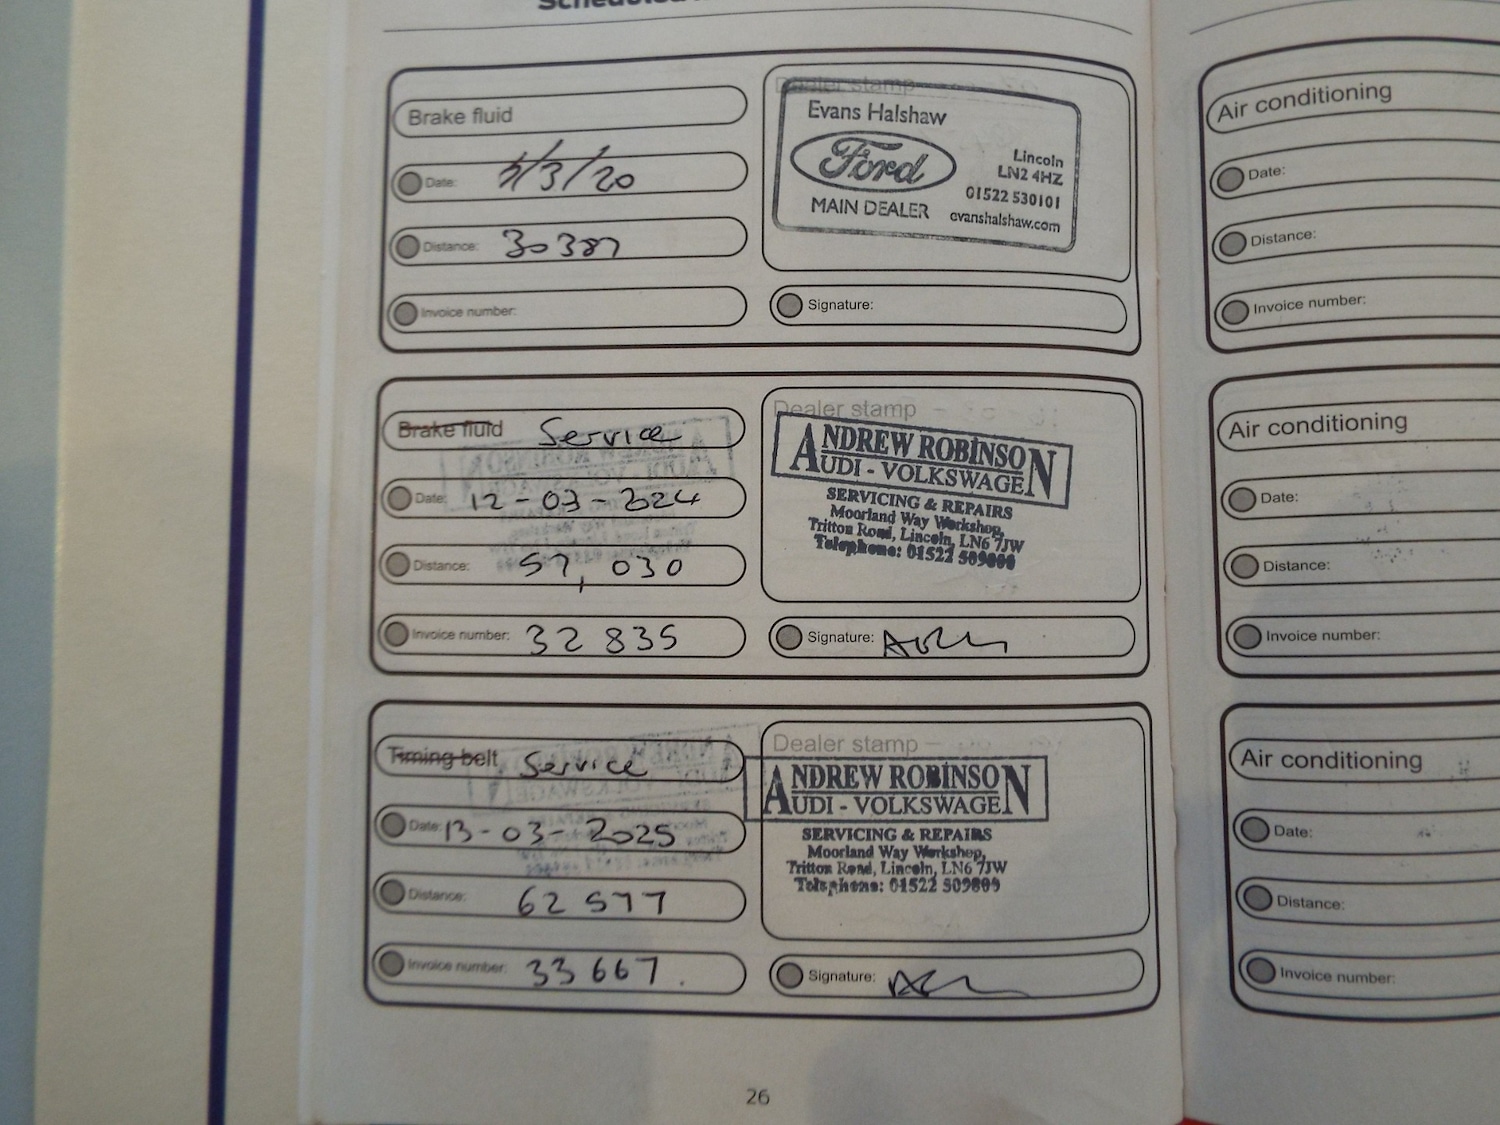 Brake fluid
Date: 5/3/20
Distance: 30387
Invoice number:
Dealer stamp
Evans Halshaw
Ford
MAIN DEALER
Lincoln
LN2 4HZ
01522 530101
evanshalshaw.com
Signature:
Brake fluid Service
Date: 12-03-2024
Distance: 57,030
Invoice number: 32 835
Dealer stamp
ANDREW ROBINSON
AUDI - VOLKSWAGEN
SERVICING & REPAIRS
Moorland Way Workshop,
Tritton Road, Lincoln, LN6 7JW
Telephone: 01522 509809
Signature:
Timing belt Service
Date: 13-03-2025
Distance: 62 577
Invoice number: 33 667.
Dealer stamp
ANDREW ROBINSON
AUDI - VOLKSWAGEN
SERVICING & REPAIRS
Moorland Way Workshop,
Tritton Road, Lincoln, LN6 7JW
Telephone: 01522 509809
Signature:
26
Air conditioning
Date:
Distance:
Invoice number:
Air conditioning
Date:
Distance:
Invoice number:
Air conditioning
Date:
Distance:
Invoice number: